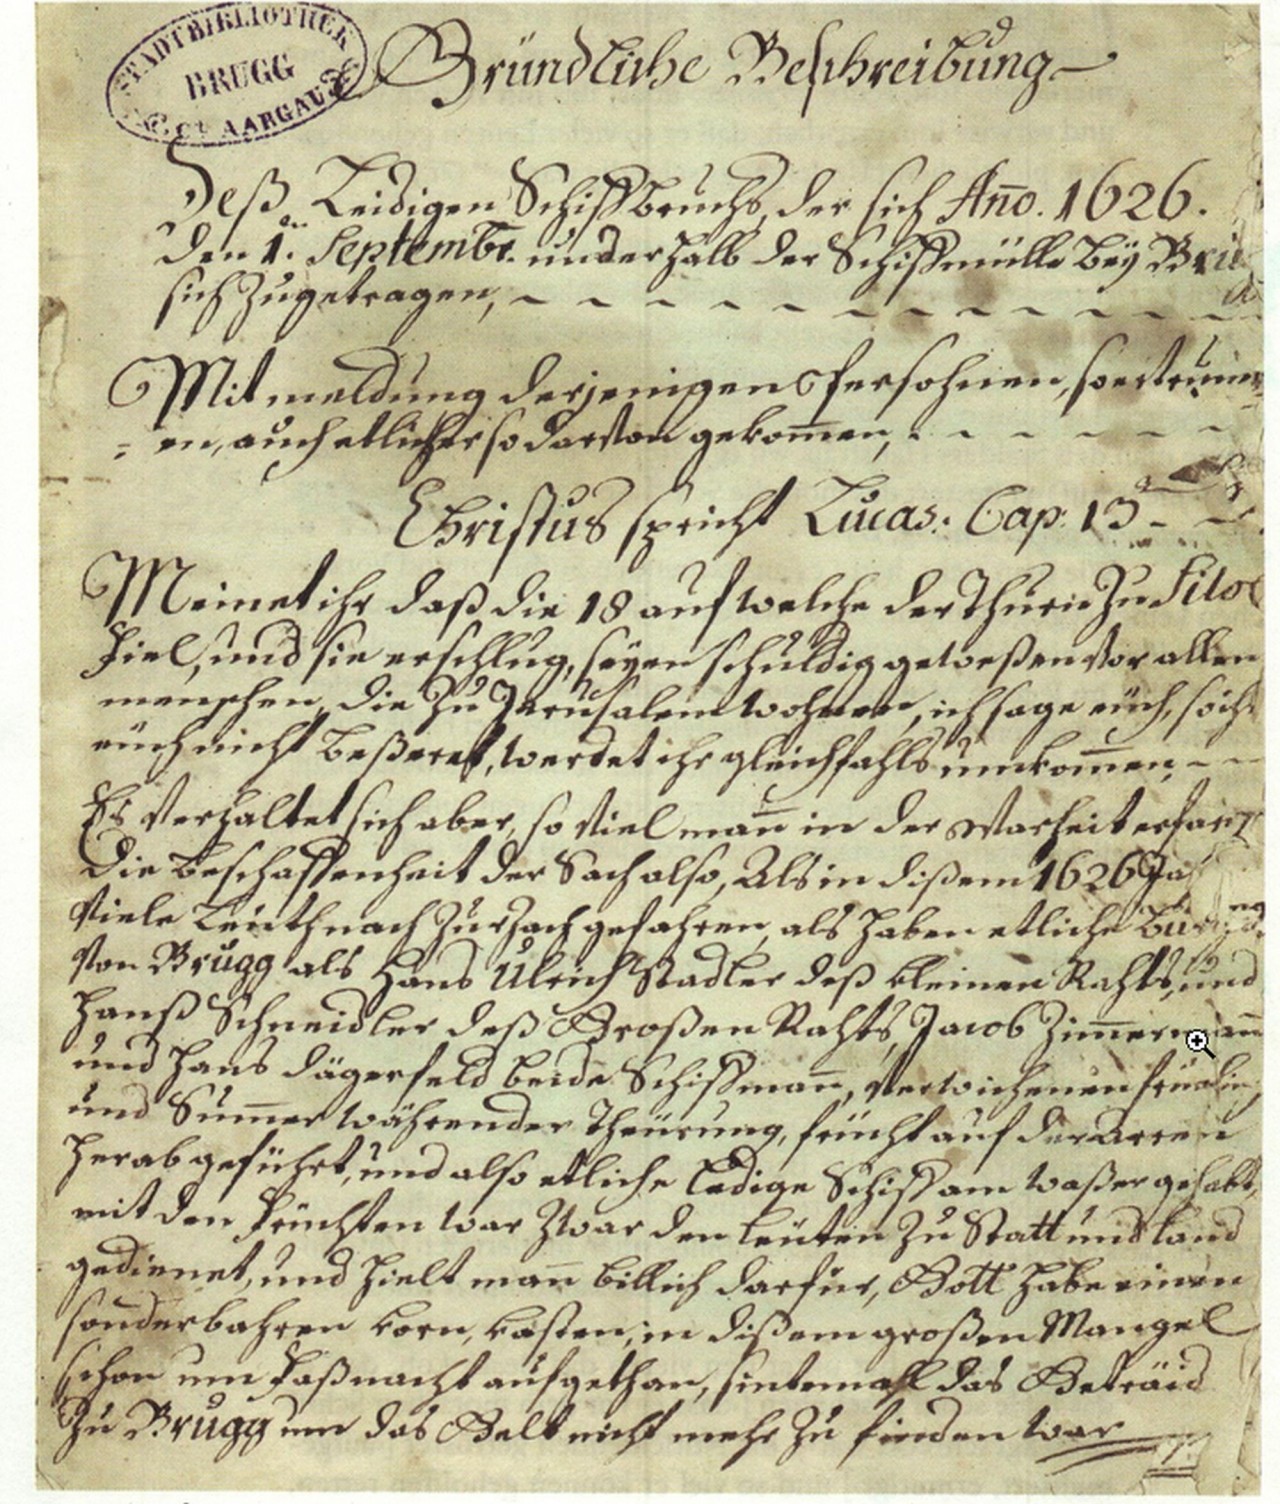 STADTBIBLIOTHEK
BRUGG
CT. AARGAU
Gründliche Beschreibung
Deß Leidigen Schiffbruchs, der sich Año. 1626.
den 1.en Septembr. underhalb der Schiffmülle bey
sich Zugetragen,
Mit meldung derjenigen Persohnen, so ertrunn
= en, auch etlicher so darvon gekom̄en,
Christus spricht Lucas: Cap. 13
Meinet ihr daß die 18 auf welche der Thurn Zu Siloe
fiel, und sie erschlug, seyen schuldig geweßen vor allen
menschen, die Zu Jerusalem wohnen, ich sage eüch, so ihr
eüch nicht beßeret, werdet ihr gleichfahls umkom̄en,
Es verhaltet sich aber, so viel man̄ in der warheit erfahrt
die beschaffenheit der Sach also, Als in dißem 1626 Jahr
viele Leüth nach Zurzach gefahren, als haben etliche Burger
von Brugg als Hans Ulrich Stadler deß kleinen Rahts, und
Hanß Schneidler deß Großen Rahts, Jacob Zim̄erman̄
und Hans Dägerfeld beide Schiffman̄, verwichenen früeling
und Sum̄er währender Theürung, frücht auf der Arren
herab geführt, und also etliche ledige Schiff am waßer gehabt,
mit den früchten war Zwar den Leüten Zu Statt und land
gedienet, und hielt man̄ billich darfür, Gott habe einen
sonderbahren korn, kasten, in dißem großen Mangel
schon um faßnacht aufgethan, sintemahl das Geträid
Zu Brugg um das Gelt nicht mehr Zu finden war